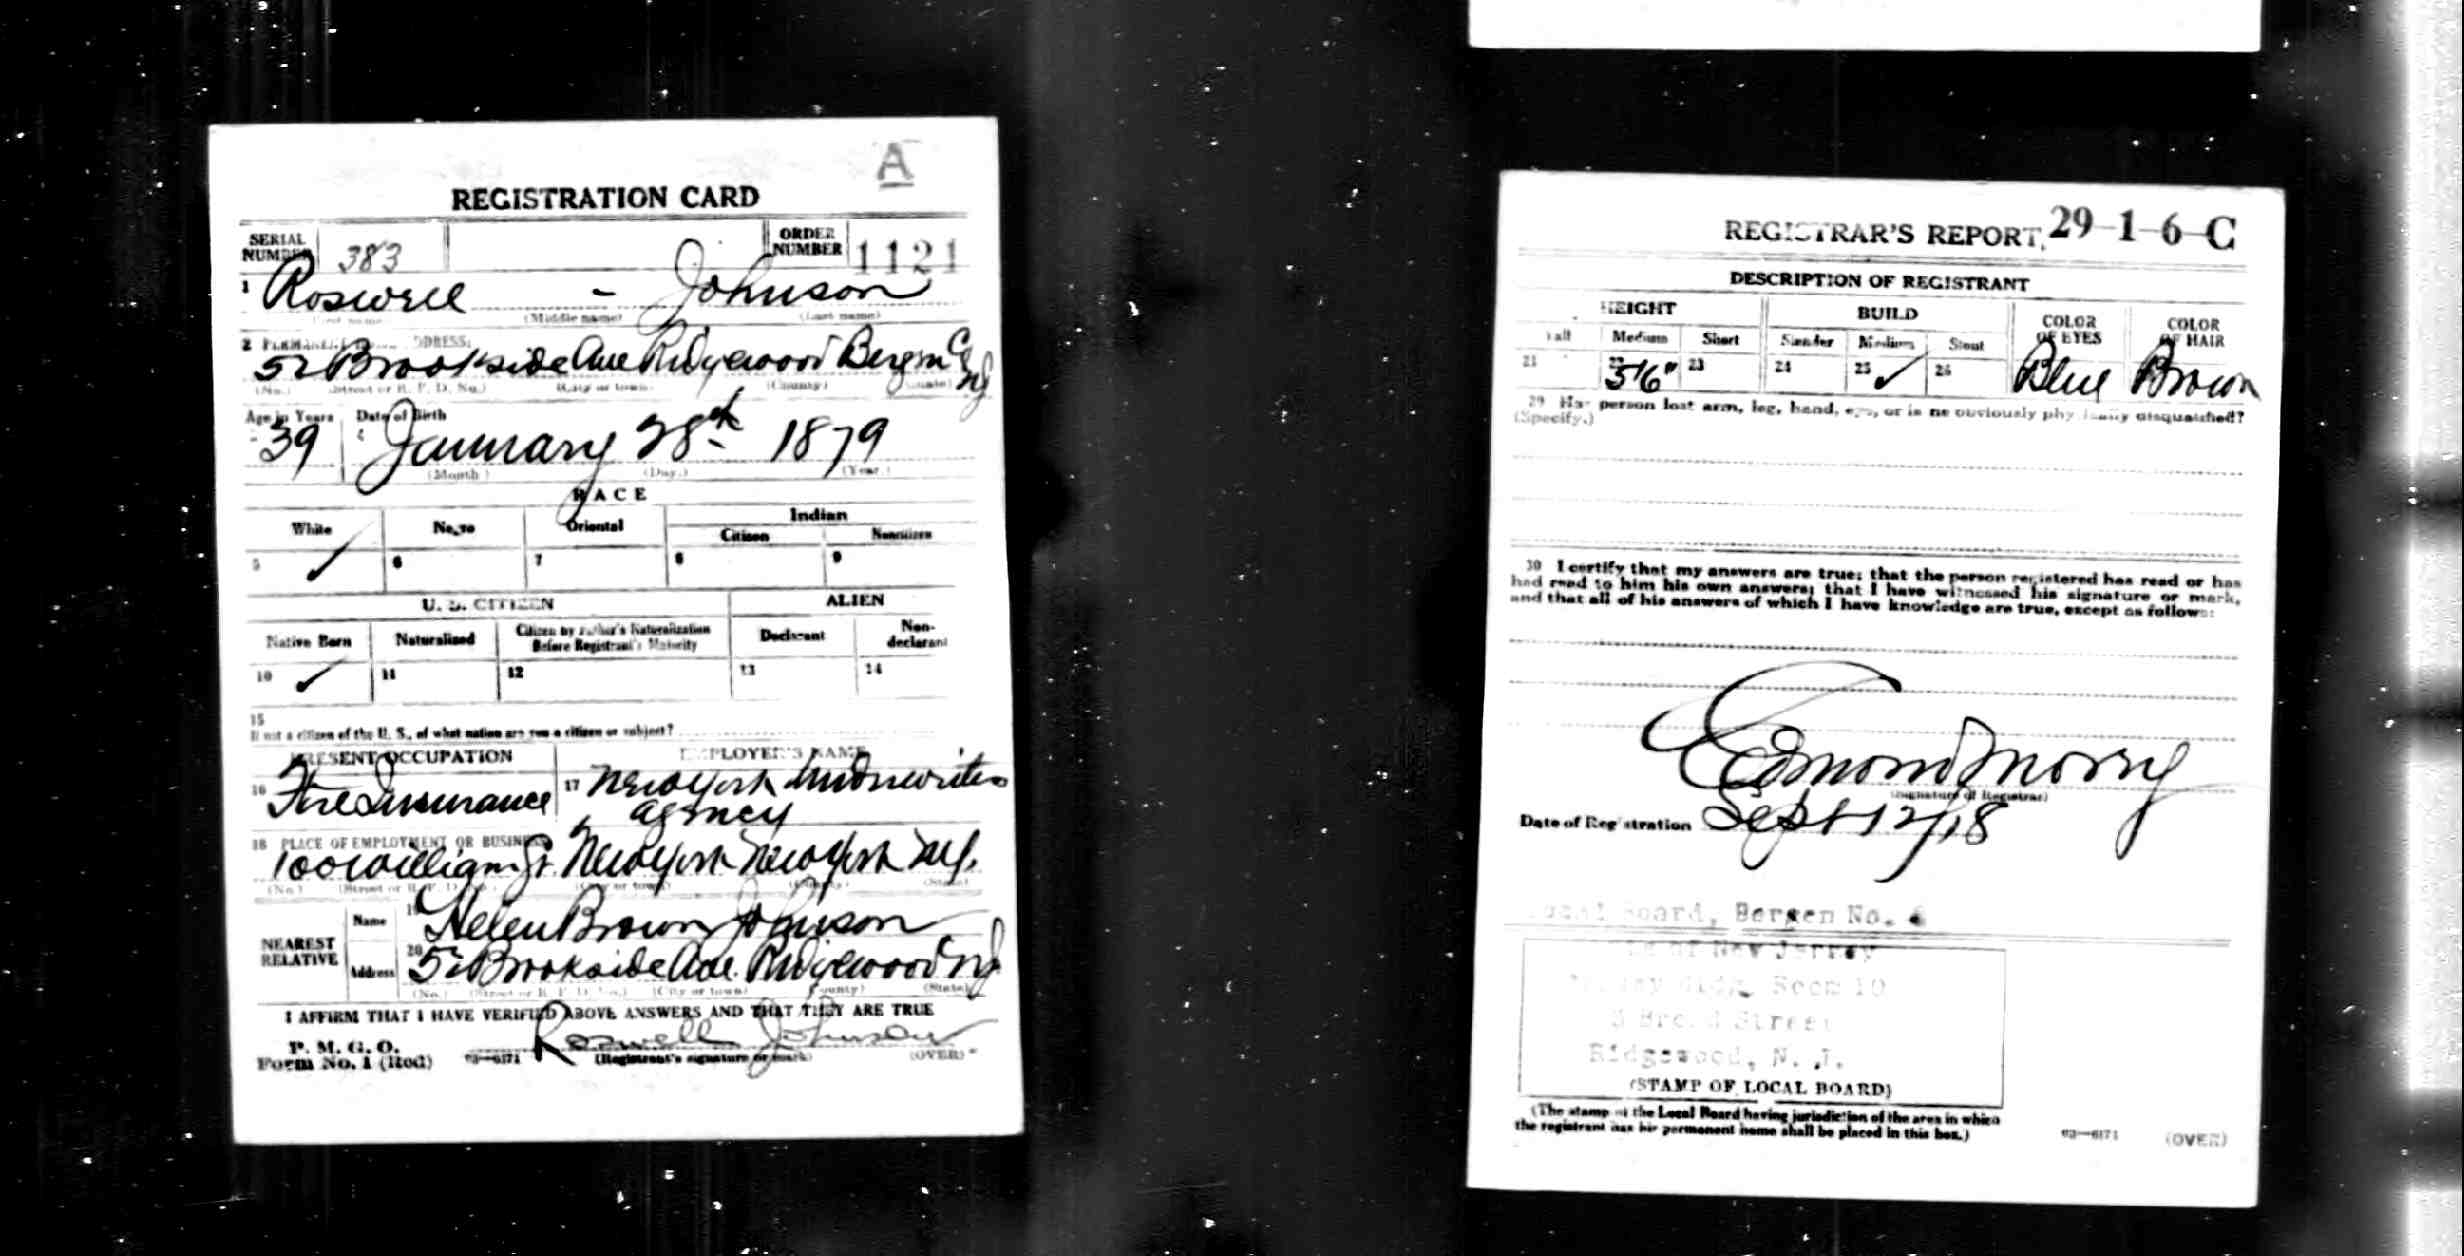 A
REGISTRATION CARD
SERIAL NUMBER 383 ORDER NUMBER 1121
1 Roswell - Johnson
(Middle name) (Last name)
2 PERMANENT ADDRESS:
52 Brookside Ave Ridgewood Bergen Co NJ
(No.) (Street or R. F. D. No.) (City or town) (County) (State)
Age in Years Date of Birth
39 January 28th 1879
(Month) (Day.) (Year.)
RACE
White Negro Oriental Indian
Citizen Noncitizen
5 ✓ 6 7 8 9
U. S. CITIZEN ALIEN
Native Born Naturalized Citizen by Father's Naturalization Before Registrant's Majority Declarant Non-declarant
10 ✓ 11 12 13 14
15
If not a citizen of the U. S., of what nation are you a citizen or subject?
PRESENT OCCUPATION EMPLOYER'S NAME
16 Fire Insurance 17 New York Underwriters
agency
18 PLACE OF EMPLOYMENT OR BUSINESS
100 William St. New York New York N.Y.
(No.) (Street or R. F. D. No.) (City or town) (County) (State)
NEAREST RELATIVE Name 19 Helen Brown Johnson
Address 20 52 Brookside Ave. Ridgewood NJ
(No.) (Street or R. F. D. No.) (City or town) (County) (State)
I AFFIRM THAT I HAVE VERIFIED ABOVE ANSWERS AND THAT THEY ARE TRUE
P. M. G. O.
Form No. 1 (Red) 03—6171 Roswell Johnson
(Registrant's signature or mark) (OVER)
REGISTRAR'S REPORT 29-1-6-C
DESCRIPTION OF REGISTRANT
HEIGHT BUILD COLOR OF EYES COLOR OF HAIR
Tall Medium Short Slender Medium Stout
21 22 5'6" 23 24 25 ✓ 26 Blue Brown
29 Has person lost arm, leg, hand, eye, or is he obviously physically disqualified?
(Specify.)
30 I certify that my answers are true; that the person registered has read or has
had read to him his own answers; that I have witnessed his signature or mark,
and that all of his answers of which I have knowledge are true, except as follows:
Edmond
(Signature of Registrar)
Date of Registration Sept 12/18
Local Board, Bergen No. 6
State of New Jersey
Bldg. Room 10
Broad Street
Ridgewood, N. J.
(STAMP OF LOCAL BOARD)
(The stamp of the Local Board having jurisdiction of the area in which
the registrant has his permanent home shall be placed in this box.)
03—6171 (OVER)